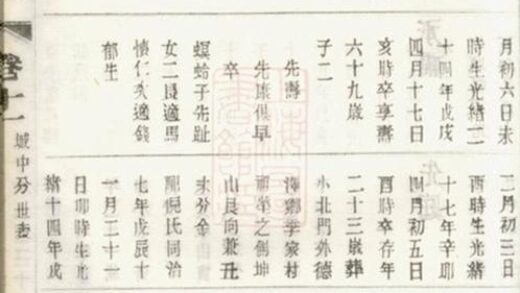 月初六日未
時生光緒二
十四年戊戌
四月十七日
亥時卒享壽
六十九歲
子二
先壽
先康俱早
卒
螟蛉子先趾
女二長適馬
懷仁次適錢
郁生
二月初三日
酉時生光緒
十七年辛卯
四月初五日
酉時卒存年
二十三歲葬
小北門外德
澤鄉家村
之側坤
山艮向兼丑
未分金
配倪氏同治
七年戊辰十
一月二十一
日卯時生光
緒十四年戊
卷十一
城中分世表